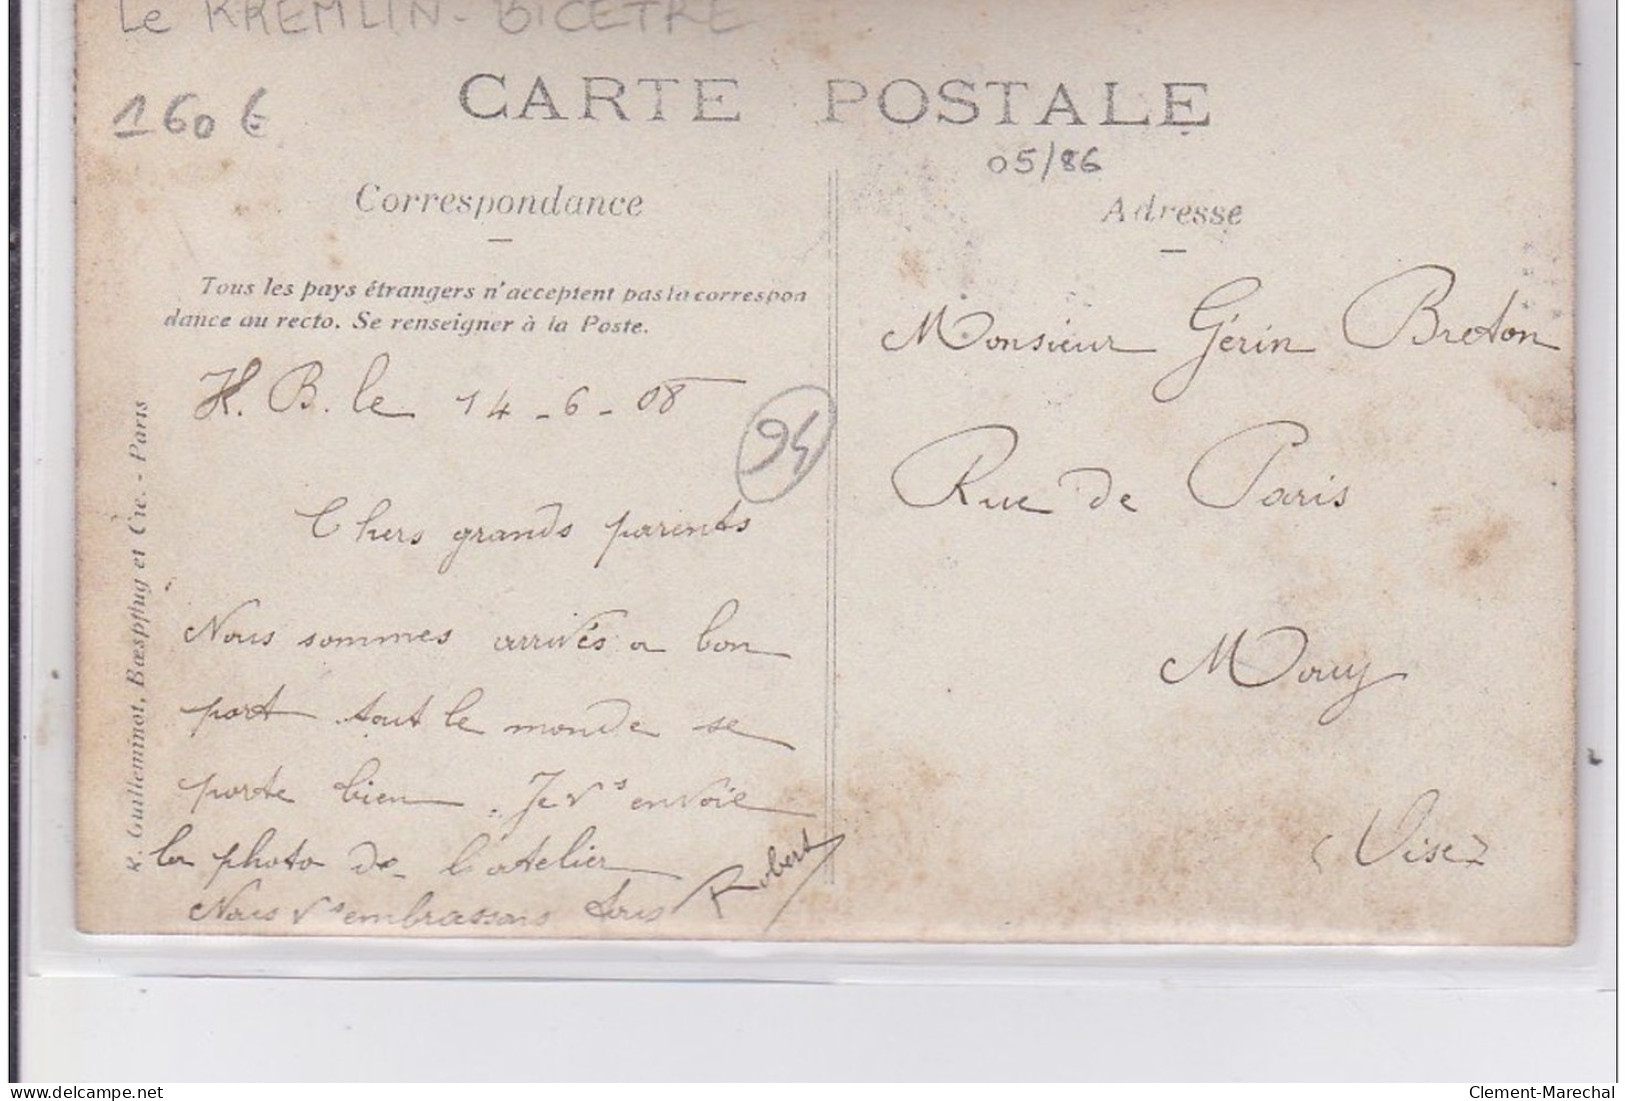 Le KREMLIN-BICETRE
160 €
CARTE POSTALE
05/86
Correspondance
Adresse
Tous les pays étrangers n'acceptent pas la correspon
dance au recto. Se renseigner à la Poste.
K. B. le 14-6-08
94
Chers grands parents
Nous sommes arrivés a bon
port tout le monde se
porte bien. Je vs envoie
la photo de l'atelier
Nous vs embrassons tous Robert
Monsieur Gérin Breton
Rue de Paris
Mouy
(Oise)
R. Guilleminot, Bœspflug et Cie. - Paris
delcampe.net
Clement-Marechal